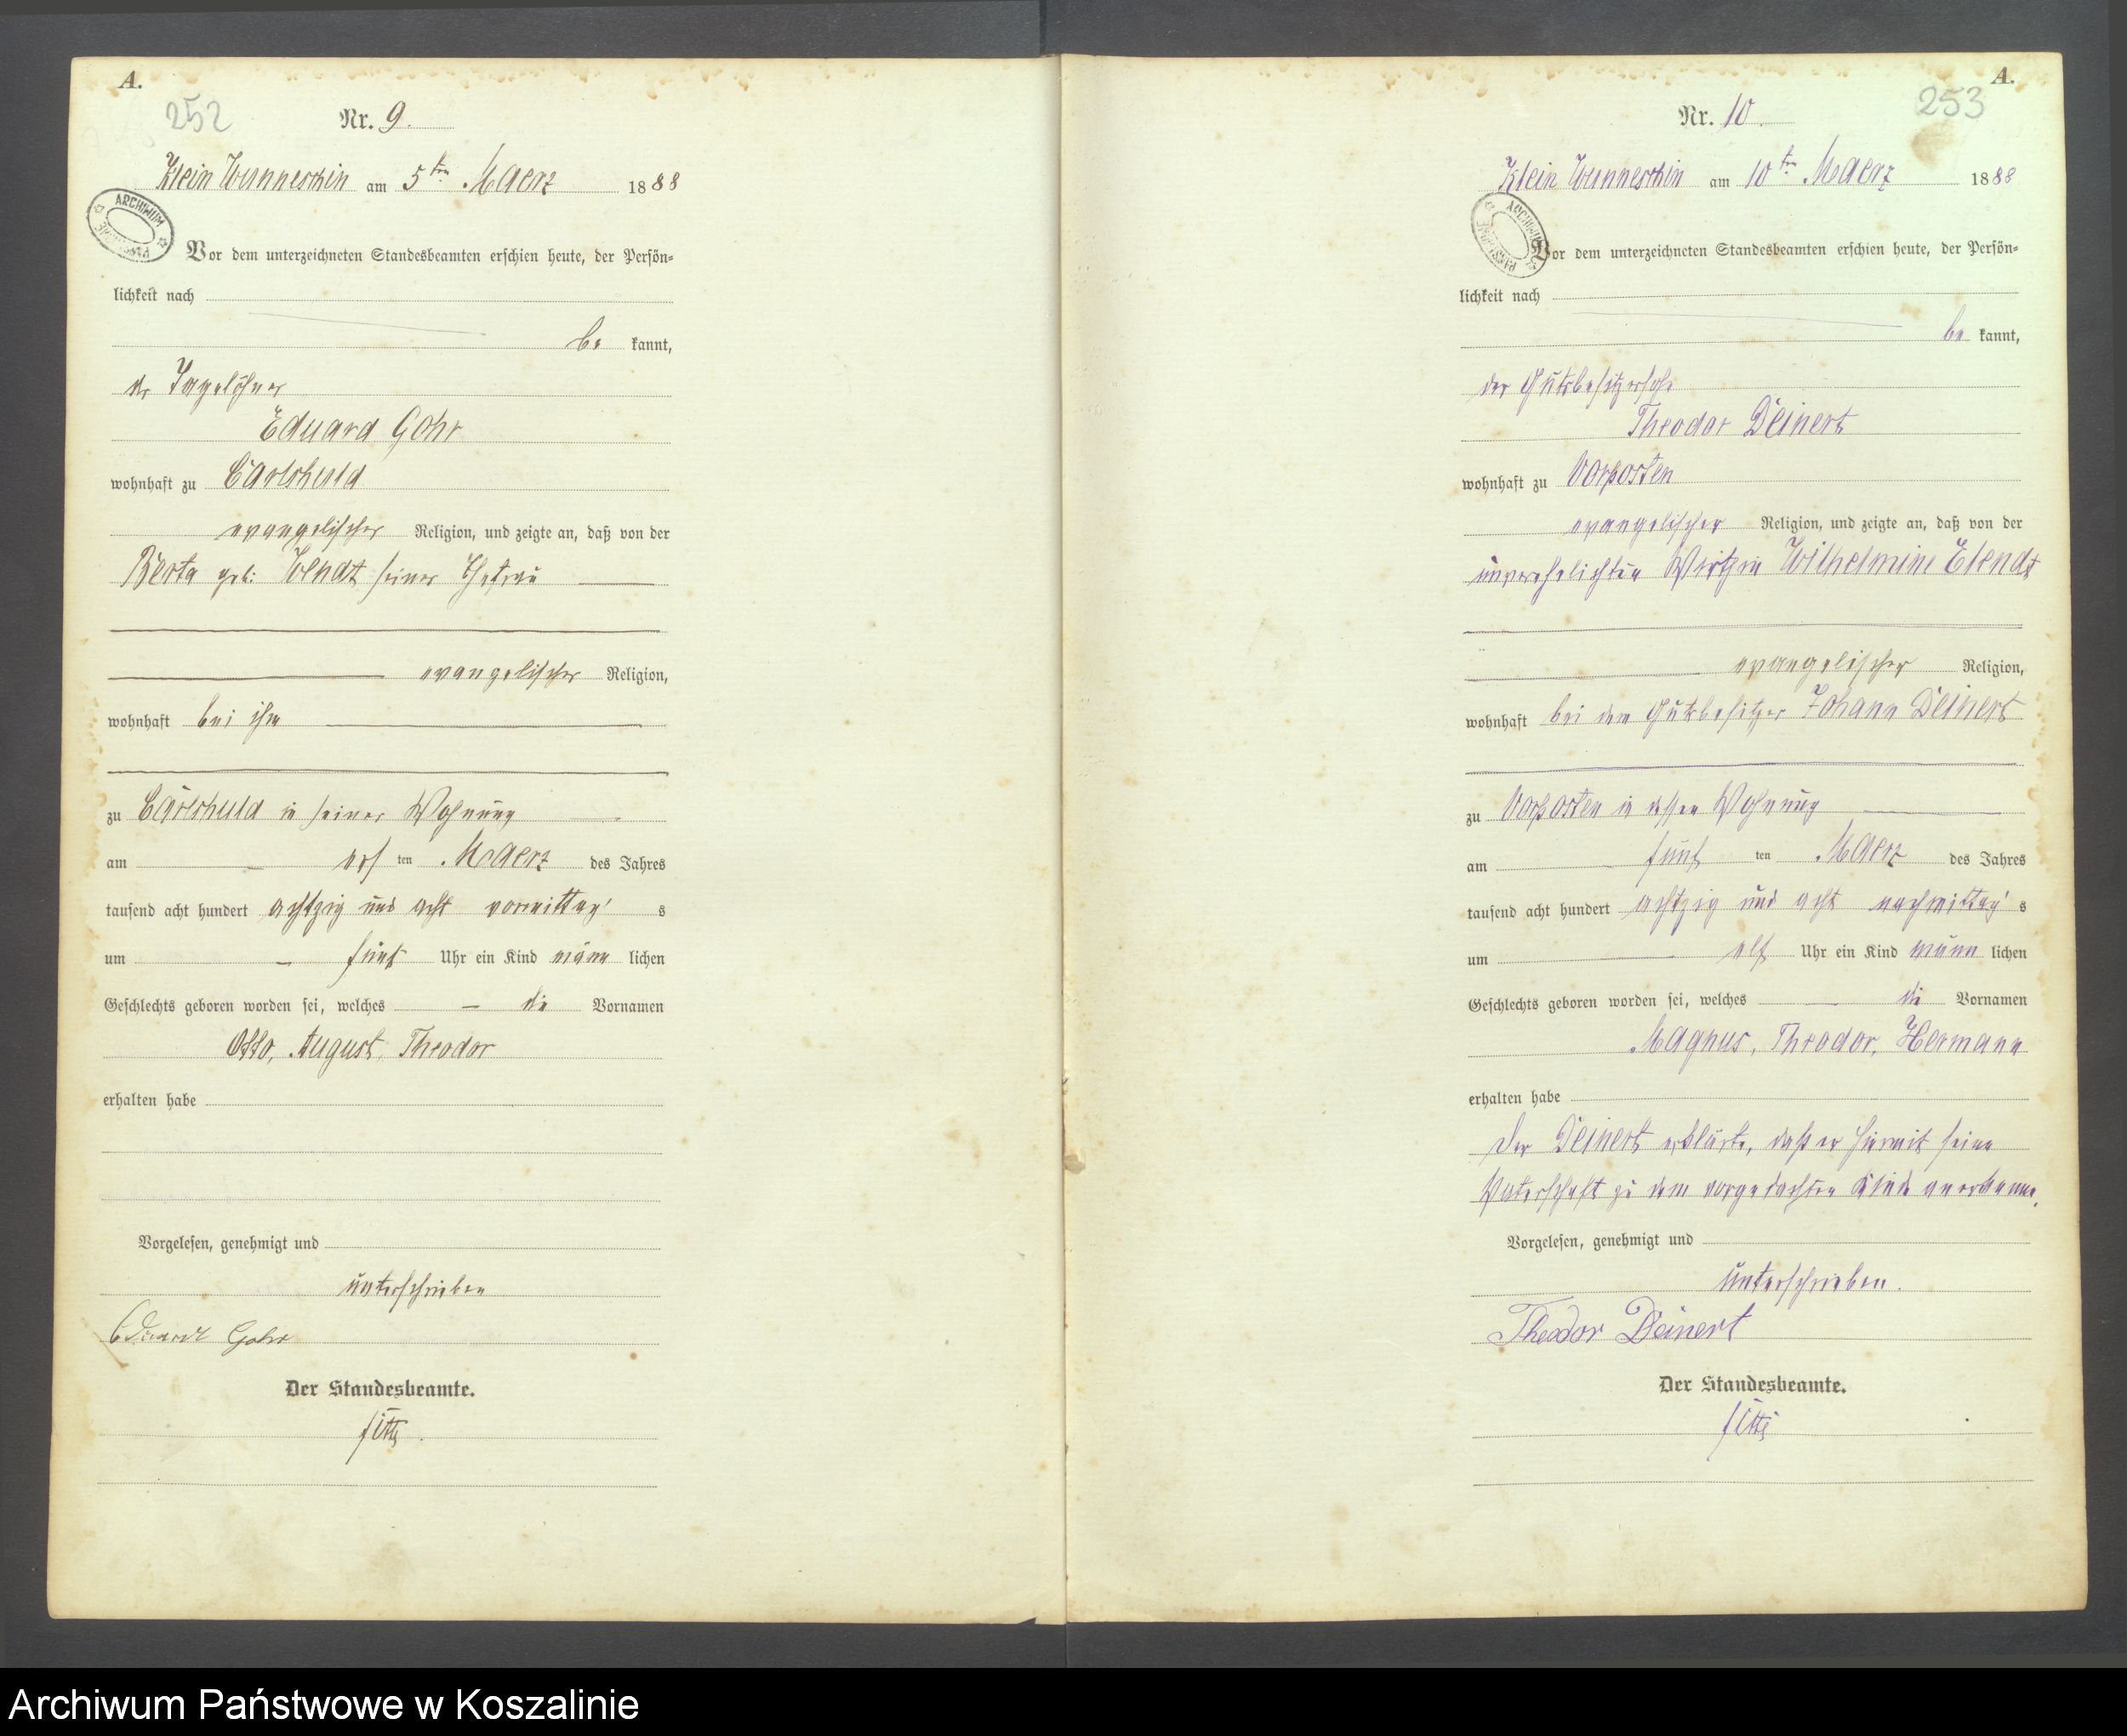 A.
252
Nr. 9.
Klein Wunneschin am 5ten Maerz 1888
ARCHIWUM
Vor dem unterzeichneten Standesbeamten erschien heute, der Persön-
lichkeit nach
be kannt,
der Tagelöhner
Eduard Gohr
wohnhaft zu Carlshuld
evangelischer Religion, und zeigte an, daß von der
Berta geb: Wendt seiner Ehefrau
evangelischer Religion,
wohnhaft bei ihm
zu Carlshuld in seiner Wohnung
am ersten Maerz des Jahres
tausend acht hundert achtzig und acht vormittags
um fünf Uhr ein Kind männlichen
Geschlechts geboren worden sei, welches die Vornamen
Otto, August, Theodor
erhalten habe
Vorgelesen, genehmigt und
unterschrieben
Eduard Gohr
Der Standesbeamte.
A.
253
Nr. 10.
Klein Wunneschin am 10ten Maerz 1888
ARCHIWUM
Vor dem unterzeichneten Standesbeamten erschien heute, der Persön-
lichkeit nach
be kannt,
der Gutsbesitzersohn
Theodor Deinert
wohnhaft zu Vorposten
evangelischer Religion, und zeigte an, daß von der
unverehelichten Wirthin Wilhelmine Elendt
evangelischer Religion,
wohnhaft bei dem Gutsbesitzer Johann Deinert
zu Vorposten in dessen Wohnung
am fünften Maerz des Jahres
tausend acht hundert achtzig und acht nachmittags
um elf Uhr ein Kind männlichen
Geschlechts geboren worden sei, welches die Vornamen
Magnus, Theodor, Hermann
erhalten habe
Der Deinert erklärte, daß er hiermit seine
Vaterschaft zu dem vorgedachten Kinde anerkenne.
Vorgelesen, genehmigt und
unterschrieben.
Theodor Deinert
Der Standesbeamte.
Archiwum Państwowe w Koszalinie